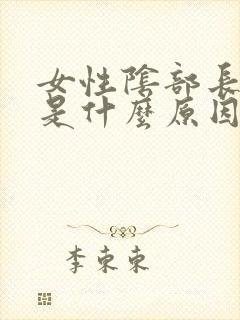 女性陰部長
是什麼原因
李東東